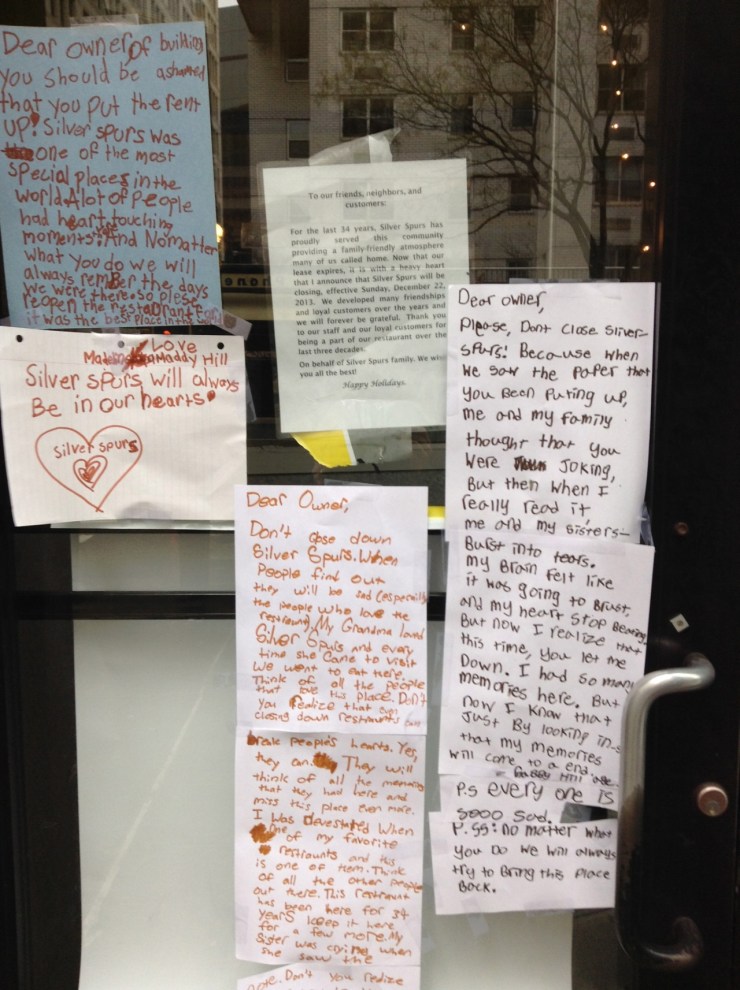 Dear owner of building
you should be ashamed
that you put the rent
up! Silver spurs was
one of the most
special places in the
world. A lot of people
had heart touching
moments. And No matter
what you do we will
always rember the days
we were there. so plese
reopen the restaurant
it was the best place in the
Love
Maddy Hill
Silver spurs will always
Be in our hearts
Silver spurs
To our friends, neighbors, and
customers:
For the last 34 years, Silver Spurs has
proudly served this community
providing a family-friendly atmosphere
many of us called home. Now that our
lease expires, it is with a heavy heart
that I announce that Silver Spurs will be
closing, effective Sunday, December 22,
2013. We developed many friendships
and loyal customers over the years and
we will forever be grateful. Thank you
to our staff and our loyal customers for
being a part of our restaurant over the
last three decades.
On behalf of Silver Spurs family. We wish
you all the best!
Happy Holidays.
Dear Owner,
Don't close down
Silver Spurs. When
People find out
they will be sad (especially
the people who love the
restraunt). My Grandma loved
Silver Spurs and every
time she came to visit
we went to eat there.
Think of all the people
that love this place. Don't
you Realize that
closing down restraunts can
break people's hearts. Yes,
they can. They will
think of all the memories
that they had here and
miss this place even more.
I was Devestated When
one of my favorite
restraunts and this
is one of them. Think
of all the other people
out there. This restraunt
has been here for 34
years keep it here
for a few more. My
Sister was crying when
she saw the
note. Don't you Realize
Dear owner,
Please, Dont close Silver
Spurs! Because when
we saw the paper that
you been Puting up,
me and my family
thought that you
were Joking,
But then when I
really read it,
me and my sisters
Burst into tears.
my Brain felt like
it was going to Brust,
and my heart stop Beating
But now I realize that
this time, you let me
Down. I had so many
memories here. But
now I know that
Just By looking in
that my memories
will come to a end
Gabby Hill age
P.s every one is
sooo sad.
P.ss: no matter what
you Do we will always
try to Bring this place
Back.